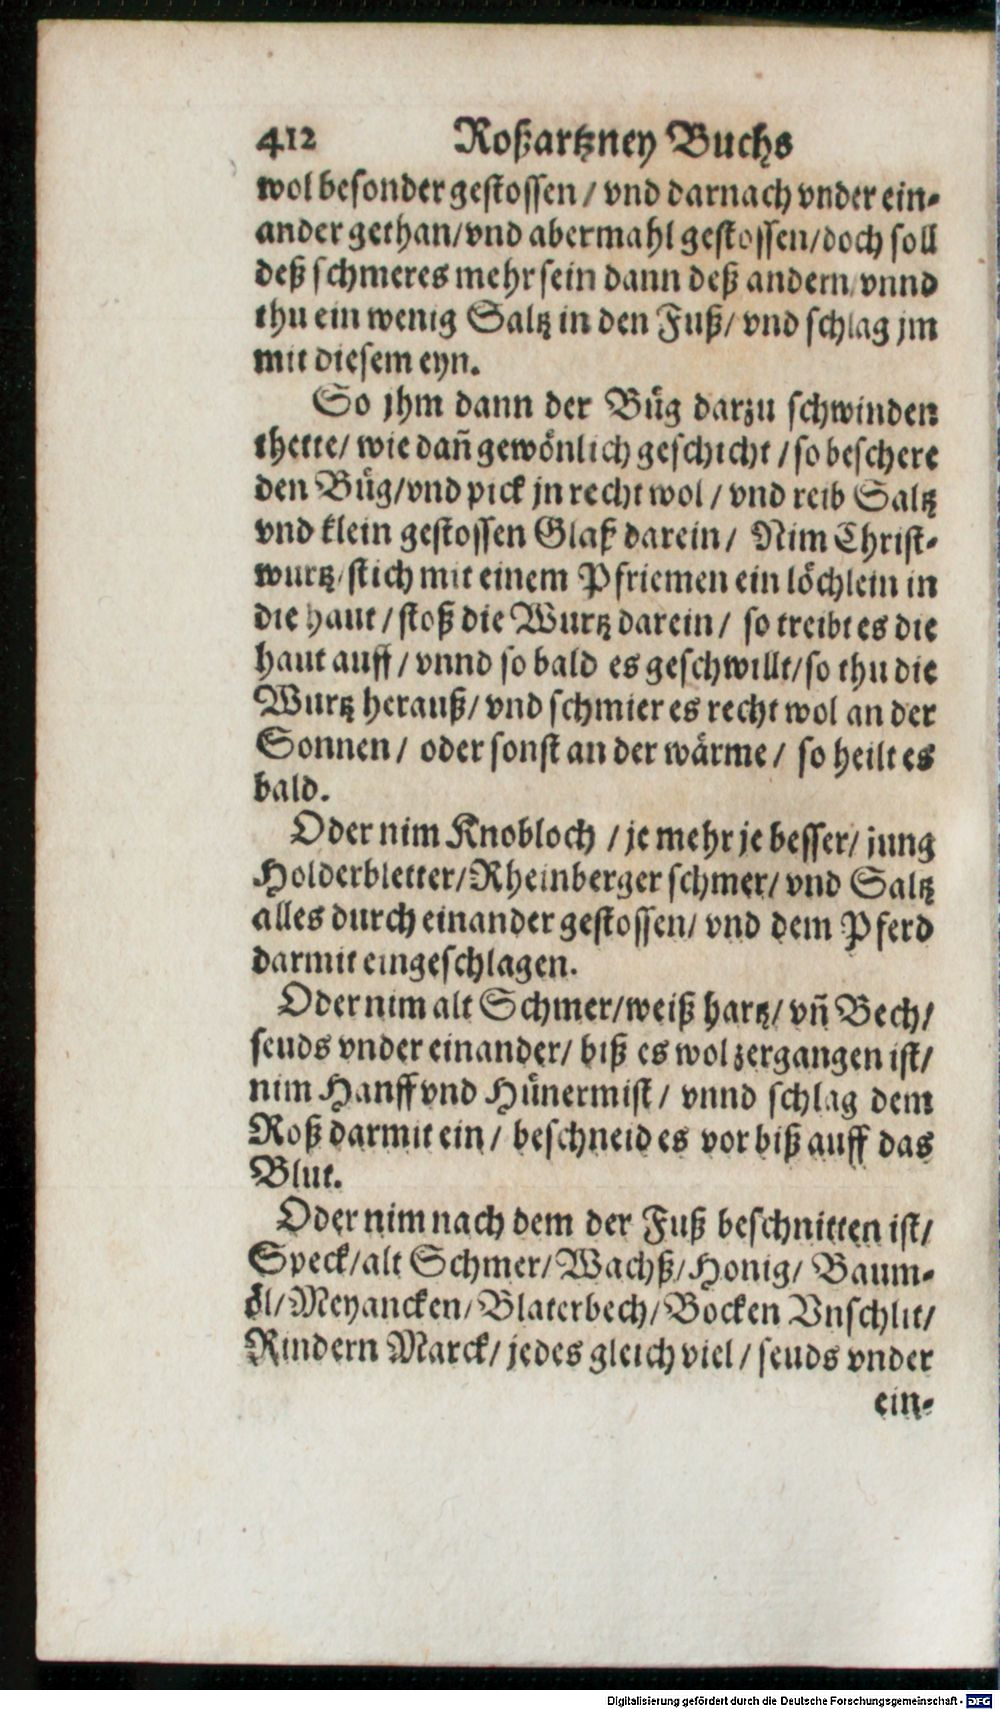 412 Roßartzney Buchs
wol besonder gestossen / vnd darnach vnder ein-
ander gethan/vnd abermahl gestossen/doch soll
deß schmeres mehr sein dann deß andern/vnnd
thu ein wenig Saltz in den Fuß/ vnd schlag jm
mit diesem eyn.
So jhm dann der Buͤg darzu schwinden
thette/ wie dañ gewoͤnlich geschicht / so beschere
den Buͤg/vnd pick jn recht wol / vnd reib Saltz
vnd klein gestossen Glaß darein/ Nim Christ-
wurtz/stich mit einem Pfriemen ein loͤchlein in
die haut / stoß die Wurtz darein/ so treibt es die
haut auff / vnnd so bald es geschwillt/so thu die
Wurtz herauß/ vnd schmier es recht wol an der
Sonnen/ oder sonst an der waͤrme/ so heilt es
bald.
Oder nim Knobloch / je mehr je besser/ jung
Holderbletter/Rheinberger schmer/ vnd Saltz
alles durch einander gestossen/ vnd dem Pferd
darmit eingeschlagen.
Oder nim alt Schmer/weiß hartz/ vñ Bech/
seuds vnder einander/ biß es wol zergangen ist/
nim Hanff vnd Huͤnermist/ vnnd schlag dem
Roß darmit ein/ beschneid es vor biß auff das
Blut.
Oder nim nach dem der Fuß beschnitten ist/
Speck/alt Schmer/Wachß/Honig/ Baum-
oͤl/Meyancken/Blaterbech/Bocken Vnschlit/
Rindern Marck/ jedes gleich viel/ seuds vnder
ein-
Digitalisierung gefördert durch die Deutsche Forschungsgemeinschaft - DFG